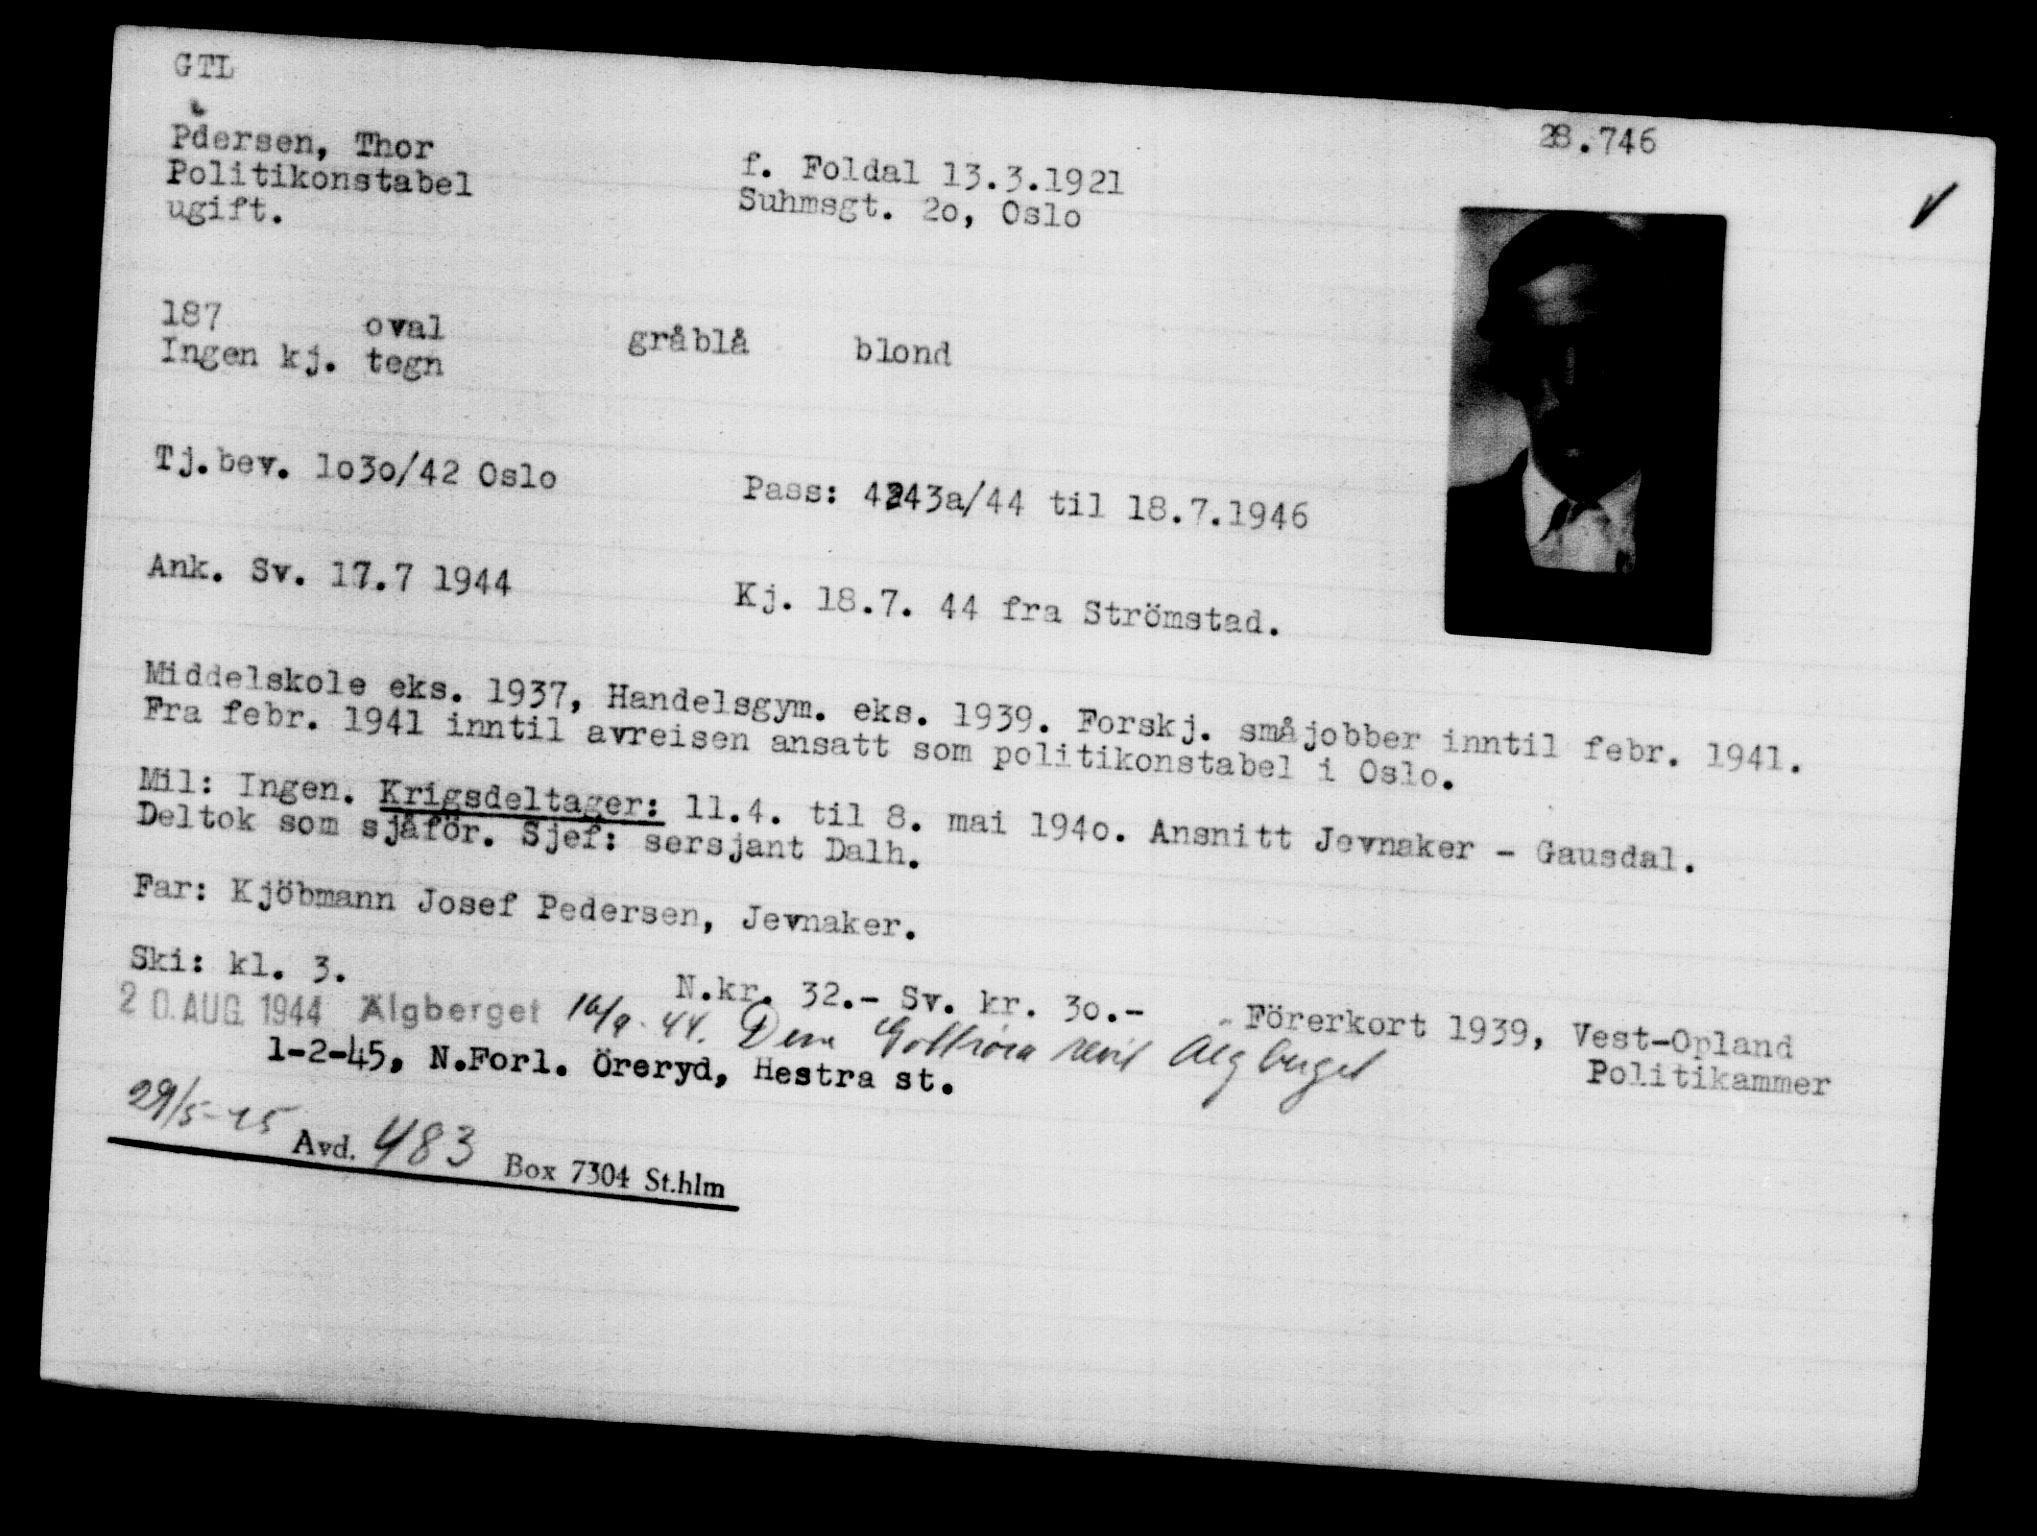 GTL
28.746
Pedersen, Thor
f. Foldal 13.3.1921
Politikonstabel
Suhmsgt. 2o, Oslo
ugift.
187 oval gråblå blond
Ingen kj. tegn
Tj.bev. 1o3o/42 Oslo
Pass: 4243a/44 til 18.7.1946
Ank. Sv. 17.7 1944
Kj. 18.7. 44 fra Strömstad.
Middelskole eks. 1937, Handelsgym. eks. 1939. Forskj. småjobber inntil febr. 1941.
Fra febr. 1941 inntil avreisen ansatt som politikonstabel i Oslo.
Mil: Ingen. Krigsdeltager: 11.4. til 8. mai 194o. Ansnitt Jevnaker - Gausdal.
Deltok som sjåför. Sjef: sersjant Dalh.
Far: Kjöbmann Josef Pedersen, Jevnaker.
Ski: kl. 3.
N.kr. 32.- Sv. kr. 3o.-
Förerkort 1939, Vest-Opland
Politikammer
20. AUG. 1944 Älgberget 16/9. 44. Dem Gottröra Älgberget
1-2-45, N.Forl. Öreryd, Hestra st.
29/5-45 Avd. 483 Box 7304 St.hlm